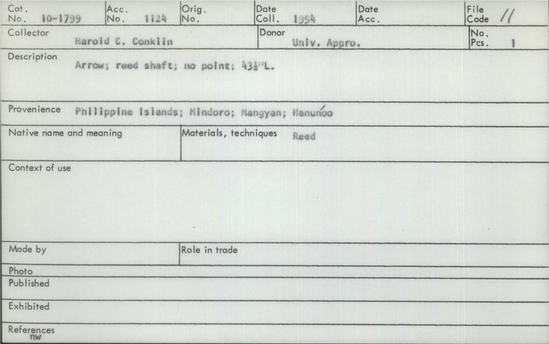 Cat. No. 10-1799 Acc. No. 1124 Orig. No. Date Coll. 1954 Date Acc. File Code 11
Collector Harold C. Conklin Donor Univ. Appro. No. Pcs. 1
Description Arrow; reed shaft; no point; 43½"L.
Provenience Philippine Islands; Mindoro; Mangyan; Hanunóo
Native name and meaning Materials, techniques Reed
Context of use
Made by Role in trade
Photo
Published
Exhibited
References
nw